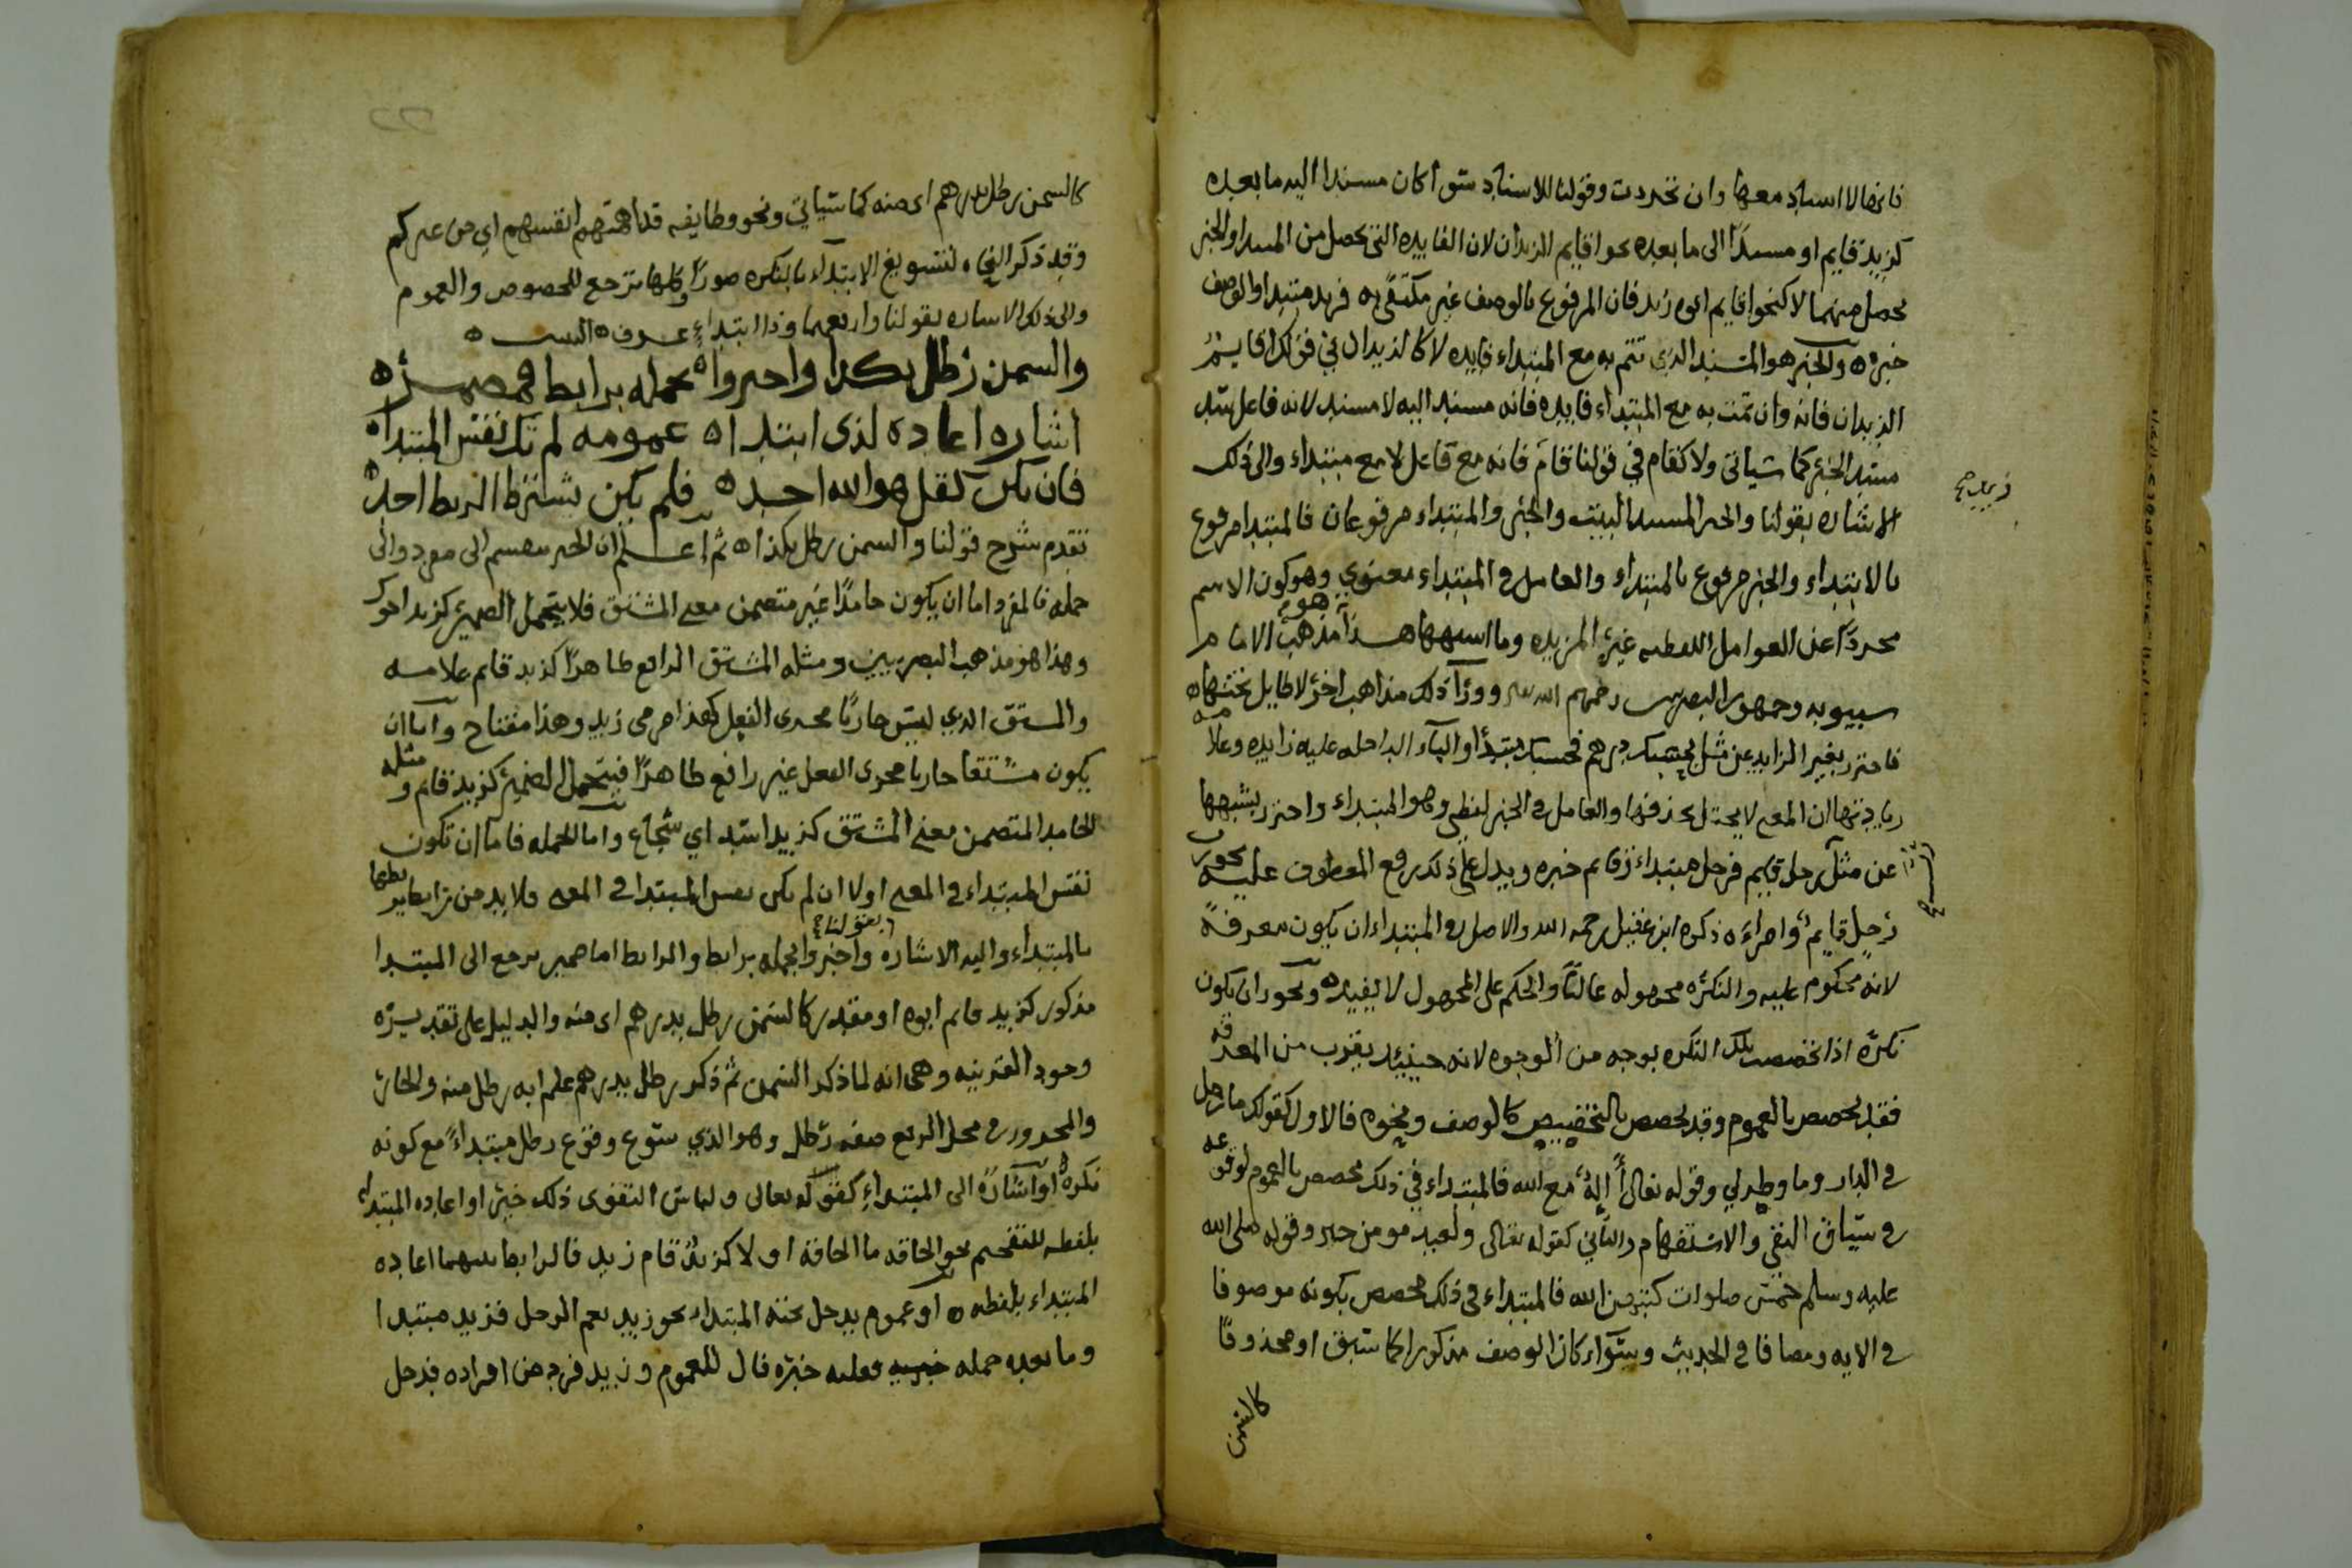 فانها لا اسناد معها وان تجردت وقولنا للاسناد سوا كان مسندا اليه ما بعده
كزيد قايم او مسندًا الى ما بعده نحو اقايم الزيدان لان الفايده التي تحصل من المبتدا والخبر
تحصل منهما لا كنحو اقايم ابوه زيد فان المرفوع بالوصف غير مكتفًى به فزيد مبتدا والوصف
خبره ه والخبر هو المسند الذي تتم به مع المبتداء فايده لا كالزيدان في قولك اقايم
الزيدان فانه وان تمت به مع المبتداء فايده فانه مسند اليه لا مسند لانه فاعل سد
مسد الخبر كما سياتي ولا كقام في قولنا قام فانه مع فاعل لا مع مبتداء والى ذلك
الاشاره بقولنا والخبر المسند والخبر والمبتداء مرفوعان فالمبتدا مرفوع
بالابتداء والخبر مرفوع بالمبتداء والعامل في المبتداء معنوي وهو كون الاسم
مجردًا عن العوامل اللفظيه غير المزيده وما اشبهها هذا هو مذهب الامام
سيبويه وجمهور البصريين رحمهم الله ووراء ذلك مذاهب اخر لا طايل تحتها ه
فاحترز بغير الزايد عن مثل بحسبك درهم فحسبك مبتدأ والباء الداخله عليه زايده وعلامه
زيادتها ان المعنى لا يختل بحذفها والعامل في الخبر لفظي وهو المبتداء واحترز بشبهها
عن مثل رب رجل قايم فرجل مبتداء وقايم خبره ويدل على ذلك رفع المعطوف عليه نحو رب
رجل قايم وامراءه ذكره ابن عقيل رحمه الله والاصل في المبتداء ان يكون معرفةً
لانه محكوم عليه والنكره مجهوله غالبًا والحكم على المجهول لا يفيد ه ويجوز ان يكون
نكره اذا تخصصت تلك النكره بوجه من الوجوه لانه حينيذ يقرب من المعرفه
فقد يخصص بالعموم وقد يخصص بالتخصيص كالوصف ونحوه فالاول كقولك ما رجل
في الدار وما وطر لي وقوله تعالى أإله مع الله فالمبتداء في ذلك مخصص بالعموم لوقوعه
في سياق النفي والاستفهام والثاني كقوله تعالى ولعبد مومن خير وقوله صلى الله
عليه وسلم خمس صلوات كتبهن الله فالمبتداء في ذلك مخصص بكونه موصوفا
في الايه ومضافا في الحديث وسواء كان الوصف مذكورا كما سبق او محذوفًا
كالسمن
كالسمن رطل بدرهم اى منه كما سياتي ونحو وطايفه قد اهمتهم انفسهم اي من غيركم
وقد ذكر النحاه لتسويغ الابتداء بالنكره صورًا وكلها ترجع للخصوص والعموم
والى ذلك الاشاره بقولنا وارفعهما وذا ابتداء عرف ه البيت ه
والسمن رطل بكذا واخبروا ه بجمله برابط فمضمره
اشاره اعاده لذى ابتداه عمومه لم تك نفس المبتداه
فان تكن كقل هو الله احد ه فلم يكن يشترط الربط احد ه
تقدم شرح قولنا والسمن رطل بكذا ه ثم اعلم ان الخبر ينقسم الى مفرد والى
جمله فالمفرد اما ان يكون جامدًا غير متضمن معنى المشتق فلا يتحمل الضمير كزيد اخوك
وهذا هو مذهب البصريين ومثله المشتق الرافع ظاهرًا كزيد قايم غلامه
والمشتق الذي ليس جاريًا مجرى الفعل كهذا مرمى زيد وهذا مفتاح واما ان
يكون مشتقا جاريا مجرى الفعل غير رافع ظاهرًا فيتحمل الضمير كزيد قام ومثله
الجامد المتضمن معنى المشتق كزيد اسد اي شجاع واما الجمله فاما ان تكون
نفس المبتداء في المعنى اولا ان لم تكن نفس المبتدا في المعنى فلا بد من رابط يربطها
بالمبتداء واليه الاشاره بقولنا واخبروا بجمله برابط والرابط اما ضمير يرجع الى المبتدا
مذكور كزيد قام ابوه او مقدر كالسمن رطل بدرهم اى منه والدليل على تقديره
وجود القرينه وهى انه لما ذكر السمن ثم ذكر رطل بدرهم علم انه رطل منه والجار
والمجرور في محل الرفع صفه رطل وهو الذي سوغ وقوع رطل مبتداءً مع كونه
نكره او اشارةً الى المبتداء كقوله تعالى ولباس التقوى ذلك خير او اعاده المبتداء
بلفظه للتفخيم نحو الحاقه ما الحاقة او لا كزيد قام زيد فالرابط بينهما اعاده
المبتداء بلفظه ه او عموم يدخل تحته المبتداء نحو زيد نعم الرجل فزيد مبتدا
وما بعده جمله فعليه خبره فال للعموم وزيد فرد من افراده فدخل